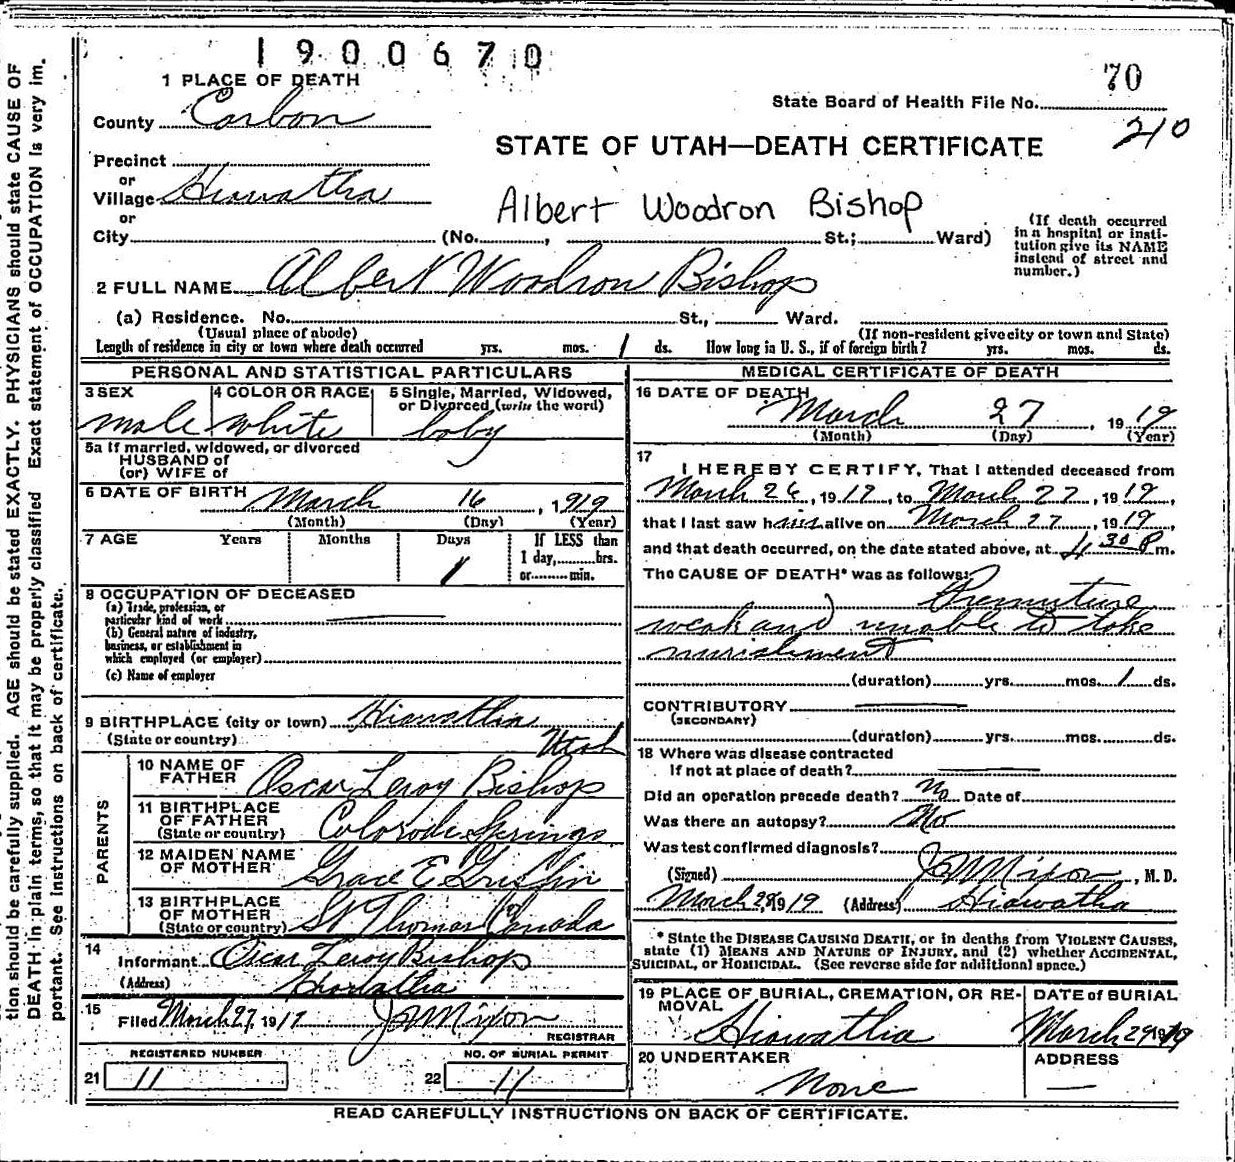 1900670
1 PLACE OF DEATH
70
State Board of Health File No.
County Carbon
210
STATE OF UTAH—DEATH CERTIFICATE
Precinct
or
Village Hiawatha
Albert Woodron Bishop
or
City (No. , St.; Ward)
(If death occurred in a hospital or insti-
tution give its NAME instead of street and number.)
2 FULL NAME Albert Woodron Bishop
(a) Residence. No. St., Ward.
(Usual place of abode) (If non-resident give city or town and State)
Length of residence in city or town where death occurred yrs. mos. 1 ds. How long in U. S., if of foreign birth? yrs. mos. ds.
PERSONAL AND STATISTICAL PARTICULARS
3 SEX 4 COLOR OR RACE 5 Single, Married, Widowed, or Divorced (write the word)
male white baby
5a If married, widowed, or divorced
HUSBAND of
(or) WIFE of
6 DATE OF BIRTH March 16, 1919
(Month) (Day) (Year)
7 AGE Years Months Days If LESS than
1 1 day, hrs.
or min.
8 OCCUPATION OF DECEASED
(a) Trade, profession, or
particular kind of work
(b) General nature of industry,
business, or establishment in
which employed (or employer)
(c) Name of employer
9 BIRTHPLACE (city or town) Hiawatha
(State or country) Utah
PARENTS
10 NAME OF
FATHER Oscar Leroy Bishop
11 BIRTHPLACE
OF FATHER
(State or country) Colorado Springs
12 MAIDEN NAME
OF MOTHER Grace E
13 BIRTHPLACE
OF MOTHER
(State or country) St Thomas Canada
14
Informant Oscar Leroy Bishop
(Address) Hiawatha
15
Filed March 27, 1919 Mixon
REGISTRAR
REGISTERED NUMBER NO. OF BURIAL PERMIT
21 11 22 11
MEDICAL CERTIFICATE OF DEATH
16 DATE OF DEATH
March 27, 1919
(Month) (Day) (Year)
17
I HEREBY CERTIFY, That I attended deceased from
March 26, 1919, to March 27, 1919,
that I last saw him alive on March 27, 1919,
and that death occurred, on the date stated above, at 4 30 P m.
The CAUSE OF DEATH* was as follows:
Premature
weak and unable to take
nurishment
(duration) yrs. mos. 1 ds.
CONTRIBUTORY
(SECONDARY)
(duration) yrs. mos. ds.
18 Where was disease contracted
If not at place of death?
Did an operation precede death? No Date of
Was there an autopsy? No
Was test confirmed diagnosis?
(Signed) Mixon, M. D.
March 28, 1919 (Address) Hiawatha
* State the DISEASE CAUSING DEATH, or in deaths from VIOLENT CAUSES,
state (1) MEANS AND NATURE OF INJURY, and (2) whether ACCIDENTAL,
SUICIDAL, or HOMICIDAL. (See reverse side for additional space.)
19 PLACE OF BURIAL, CREMATION, OR RE-
MOVAL DATE of BURIAL
Hiawatha March 29 1919
20 UNDERTAKER ADDRESS
None
READ CAREFULLY INSTRUCTIONS ON BACK OF CERTIFICATE.
tion should be carefully supplied. AGE should be stated EXACTLY. PHYSICIANS should state CAUSE OF
DEATH in plain terms, so that it may be properly classified Exact statement of OCCUPATION is very im.
portant. See instructions on back of certificate.